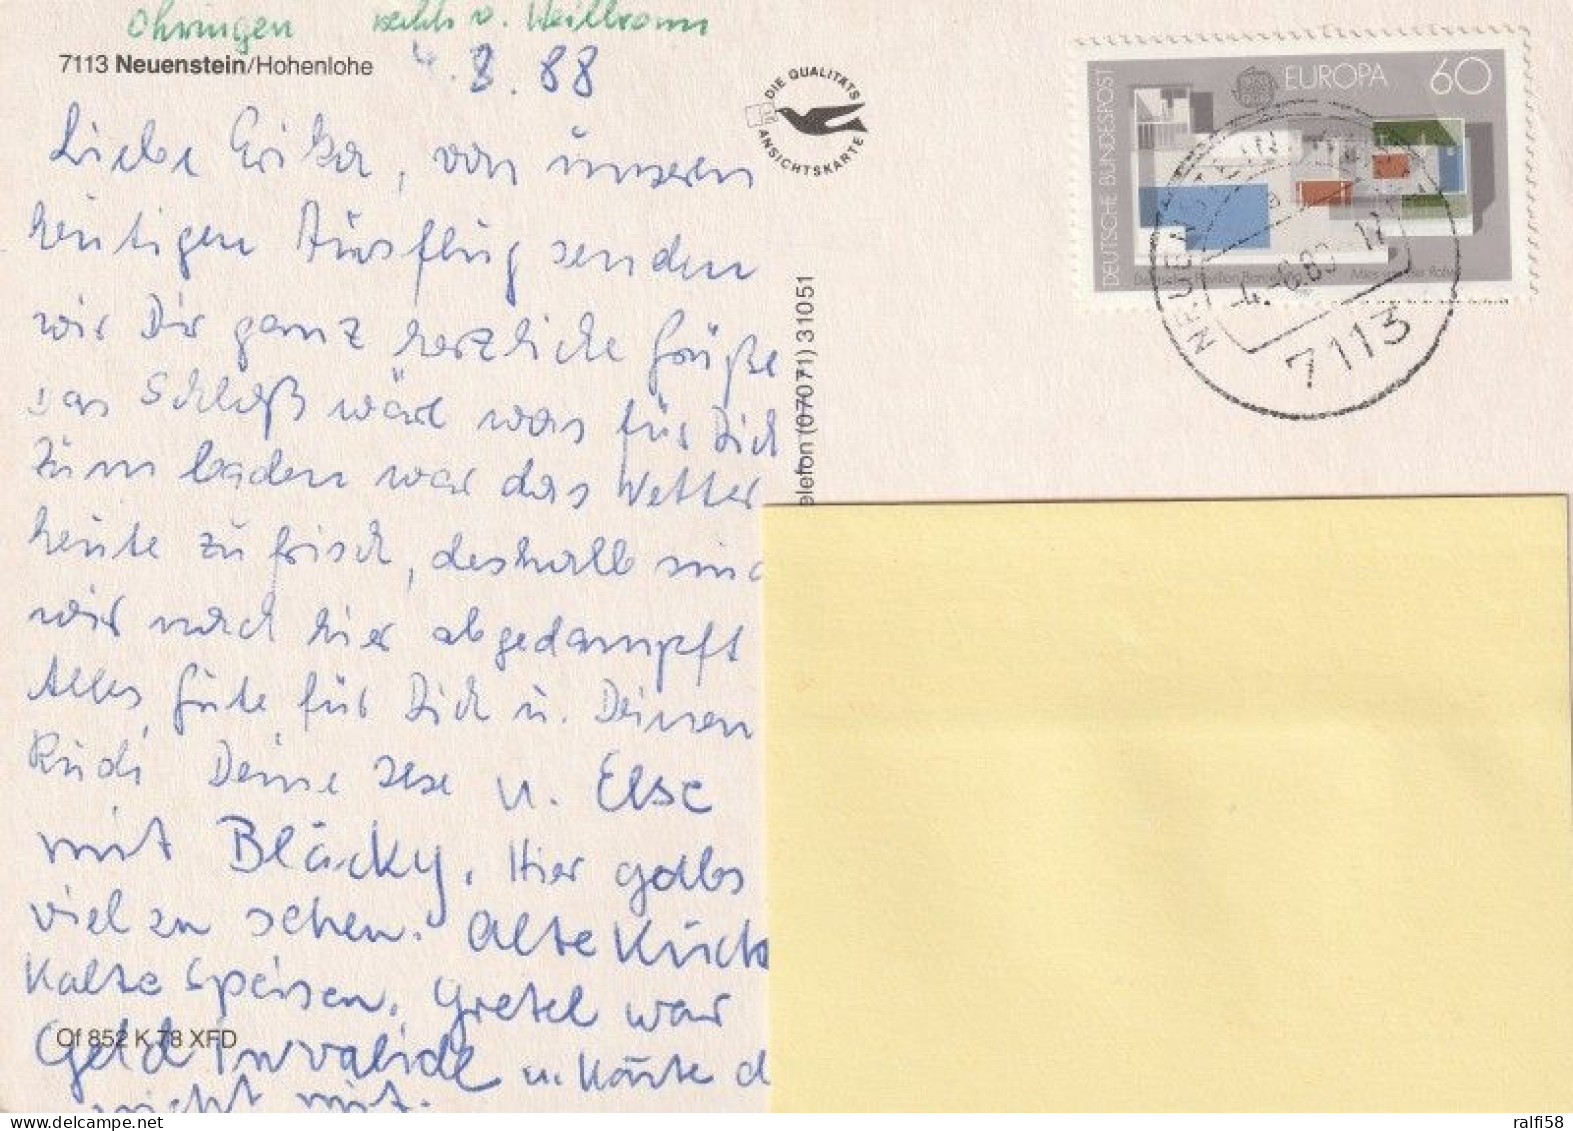 Öhringen nahe v. Heilbronn
7113 Neuenstein/Hohenlohe
4.8.88
Liebe Erika, von unseren
heutigen Ausflug senden
wir Dir ganz herzliche Grüße
das Schloß wäre was für Dich
Zum baden war das Wetter
heute zu frisch, deshalb sind
wir nach hier abgedampft
Alles Gute für Dich u. Deinen
Rudi Deine Ilse u. Else
mit Bläcky, Hier gabs
viel zu sehen. Alte Küche
Kalte Speisen. Gretel war
Geld invalide u. konnte d
nicht mit.
Of 852 K 78 XFD
DIE QUALITÄTS
ANSICHTSKARTE
elefon (07071) 31051
DEUTSCHE BUNDESPOST
EUROPA 60
Deutscher Pavillon Barcelona Mies van der Rohe
NEUENSTEIN
a
-4.-8.88-17
7113
ralfi58